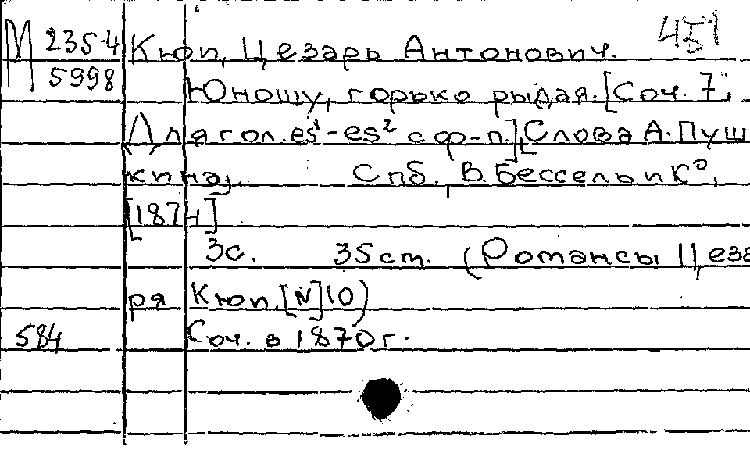 451
М 235-4 Кюи, Цезарь Антонович.
5998 Юношу, горько рыдая. [Соч. 7,
Для гол. es¹-es² с ф-п.] Слова А. Пуш
кина, Спб., В. Бессель и К°,
[1874]
3с. 35 cm. (Романсы Цеза
ря Кюи, [N] 10)
584 Соч. в 1870 г.